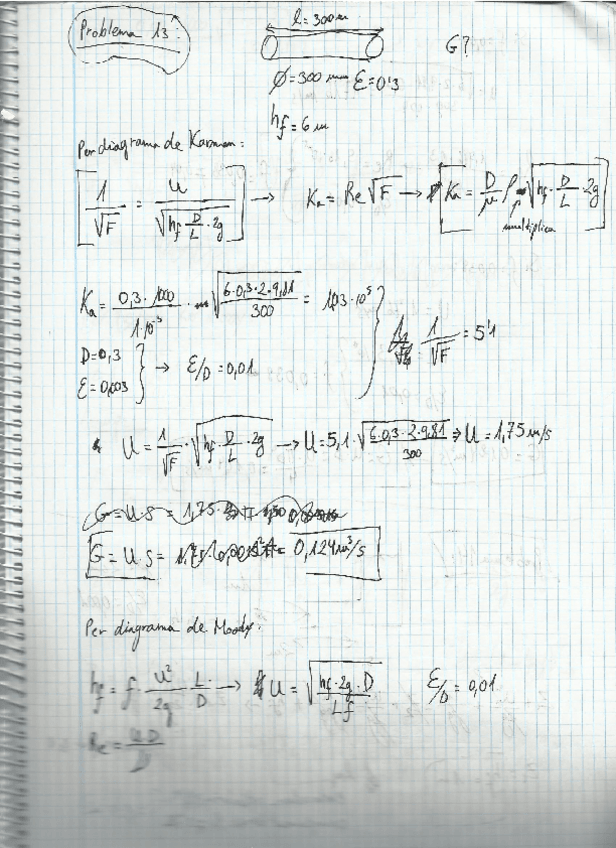 Problema 13:
l = 300 m
G?
Ø = 300 mm ε = 0'3
hf = 6 m
Per diagrama de Karman:
[1/√F = U/√(hf · D/L · 2g)] → Ka = Re √F → [Ka = D/μ ρ √(hf · D/L · 2g)]
multiplica
Ka = 0,3 · 1000/1·10⁻³ · √(6·0,3·2·9,81/300) = 1,03·10⁵
D = 0,3
ε = 0,003 } → ε/D = 0,01
} 1/√F = 5'1
U = 1/√F · √(hf · D/L · 2g) → U = 5,1 · √(6·0,3·2·9,81/300) ⇒ U = 1,75 m/s
G = U·S = 1,75
G = U S = 0,124 m³/s
Per diagrama de Moody:
hf = f · U²/2g · L/D → U = √(hf·2g·D/Lf) ε/D = 0,01
Re = UD/